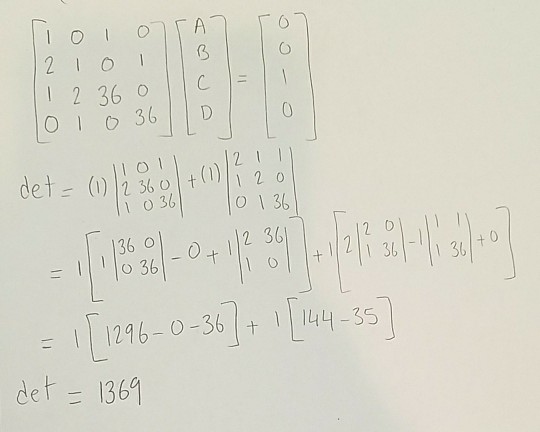 [1 0 1 0] [A] [0]
[2 1 0 1] [B] [0]
[1 2 36 0] [C] = [1]
[0 1 0 36] [D] [0]
det = (1) |1 0 1; 2 36 0; 1 0 36| + (1) |2 1 1; 1 2 0; 0 1 36|
= 1 [1 |36 0; 0 36| - 0 + 1 |2 36; 1 0|] + 1 [2 |2 0; 1 36| - 1 |1 1; 1 36| + 0]
= 1 [1296 - 0 - 36] + 1 [144 - 35]
det = 1369